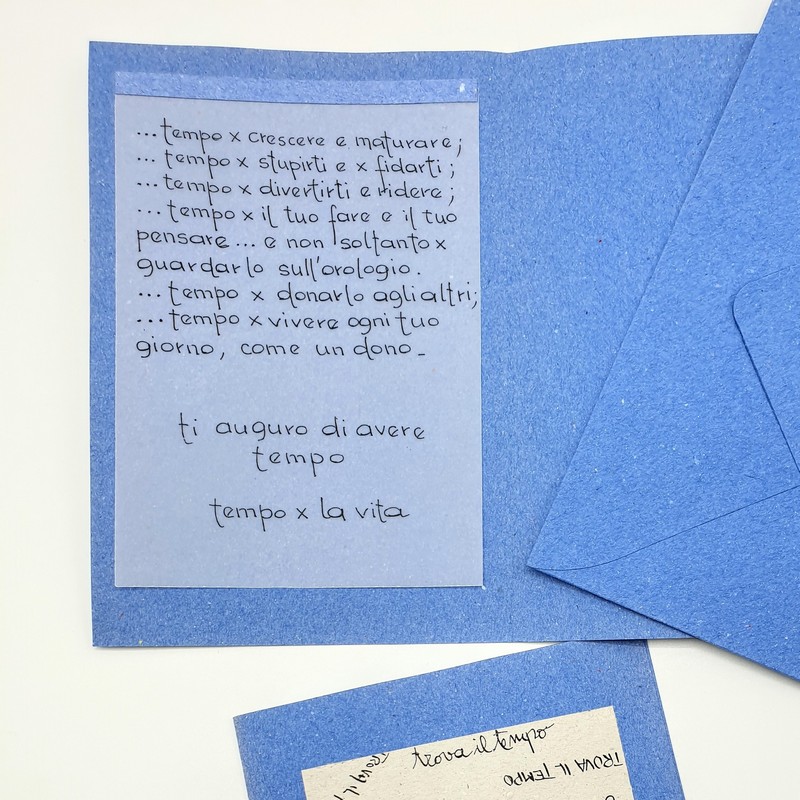 ...tempo x crescere e maturare;
... tempo x stupirti e x fidarti;
...tempo x divertirti e ridere;
...tempo x il tuo fare e il tuo
pensare... e non soltanto x
guardarlo sull'orologio.
...tempo x donarlo agli altri;
...tempo x vivere ogni tuo
giorno, come un dono_
ti auguro di avere
tempo
tempo x la vita
trova il tempo
TROVA IL TEMPO